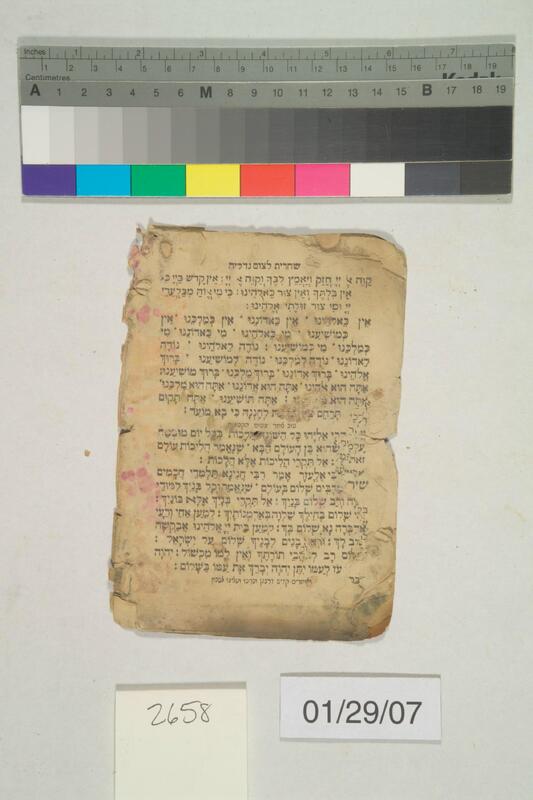 Inches 1 2 3 4 5 6 7
Centimetres 1 2 3 4 5 6 7 8 9 10 11 12 13 14 15 16 17 18 19
Kodak
A 1 2 3 4 5 6 M 8 9 10 11 12 13 14 15 B 17 18 19
שחרית לצום גדליה
קוה אל יְיָ חֲזַק וְיַאֲמֵץ לִבֶּךָ וְקַוֵּה אל יְיָ: אֵין קָדוֹשׁ כַּיְיָ כי
אֵין בִּלְתֶּךָ וְאֵין צוּר כֵּאלֹהֵינוּ: כִּי מִי אֱלוֹהַּ מִבַּלְעֲדֵי
יְיָ וּמִי צוּר זוּלָתִי אֱלֹהֵינוּ:
אֵין כֵּאלֹהֵינוּ אֵין כַּאדוֹנֵנוּ אֵין כְּמַלְכֵּנוּ אֵין
כְּמוֹשִׁיעֵנוּ מִי כֵאלֹהֵינוּ מִי כַאדוֹנֵנוּ מִי
כְמַלְכֵּנוּ מִי כְמוֹשִׁיעֵנוּ: נוֹדֶה לֵאלֹהֵינוּ נוֹדֶה
לַאדוֹנֵנוּ נוֹדֶה לְמַלְכֵּנוּ נוֹדֶה לְמוֹשִׁיעֵנוּ בָּרוּךְ
אֱלֹהֵינוּ בָּרוּךְ אֲדוֹנֵנוּ בָּרוּךְ מַלְכֵּנוּ בָּרוּךְ מוֹשִׁיעֵנוּ:
אַתָּה הוּא אֱלֹהֵינוּ אַתָּה הוּא אֲדוֹנֵנוּ אַתָּה הוּא מַלְכֵּנוּ
אַתָּה הוּא : אַתָּה תוֹשִׁיעֵנוּ אַתָּה תָקוּם
תְּרַחֵם לְחֶנְנָהּ כִּי בָא מוֹעֵד:
אֵלִיָּהוּ כָּל הֲלָכוֹת בְּכָל יוֹם מוּבְטָח
שֶׁהוּא בֶּן הָעוֹלָם הַבָּא שֶׁנֶּאֱמַר הֲלִיכוֹת עוֹלָם
אַל תִּקְרֵי הֲלִיכוֹת אֶלָּא הֲלָכוֹת:
אֶלְעָזָר אָמַר רַבִּי חֲנִינָא תַּלְמִידֵי חֲכָמִים
מַרְבִּים שָׁלוֹם בָּעוֹלָם שֶׁנֶּאֱמַר וְכָל בָּנַיִךְ לִמּוּדֵי
וְרַב שְׁלוֹם בָּנָיִךְ: אַל תִּקְרֵי בָּנָיִךְ אֶלָּא בּוֹנָיִךְ:
שָׁלוֹם בְּחֵילֵךְ שַׁלְוָה בְּאַרְמְנוֹתָיִךְ: לְמַעַן אַחַי וְרֵעָי
אֲדַבְּרָה נָּא שָׁלוֹם בָּךְ: לְמַעַן בֵּית יְיָ אֱלֹהֵינוּ אֲבַקְשָׁה
טוֹב לָךְ: וּרְאֵה בָנִים לְבָנֶיךָ שָׁלוֹם עַל יִשְׂרָאֵל:
שָׁלוֹם רָב לְאֹהֲבֵי תוֹרָתֶךָ וְאֵין לָמוֹ מִכְשׁוֹל: יְהוָה
עֹז לְעַמּוֹ יִתֵּן יְהוָה יְבָרֵךְ אֶת עַמּוֹ בַשָּׁלוֹם:
2658
01/29/07